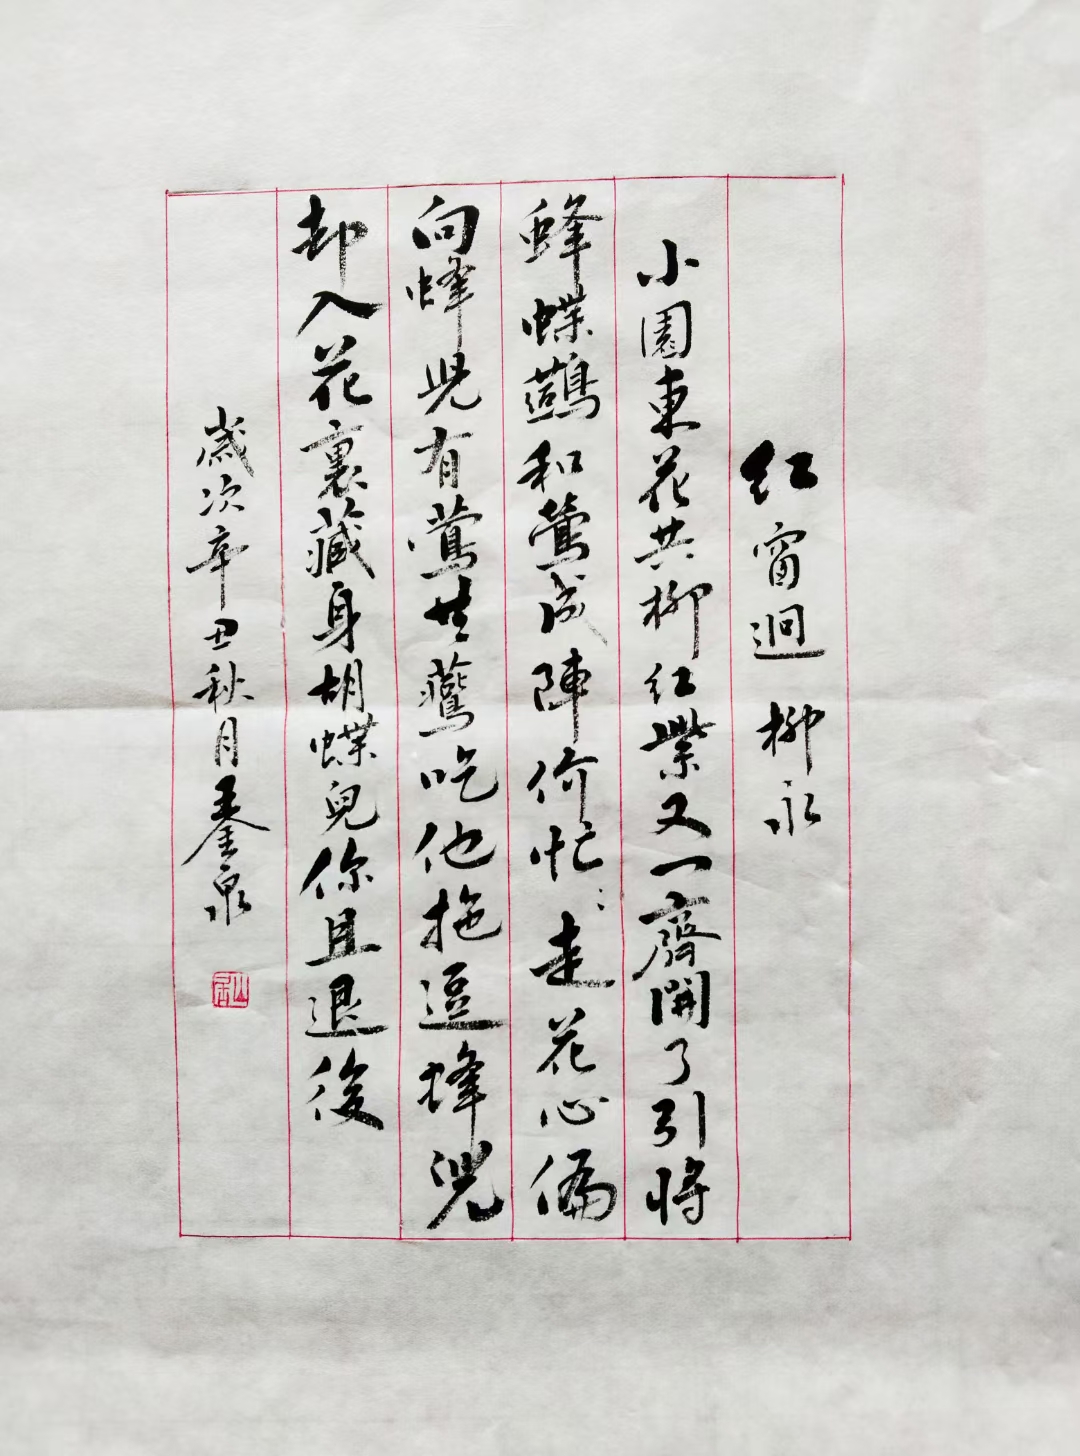 红窗迥 柳永
小園東花共柳红紫又一齊開了引將
蜂蝶鷰和鶯成陣价忙〻走花心偏
向蜂兒有鶯共鷰吃他拖逗蜂兒
却入花裏藏身胡蝶兒你且退後
歲次辛丑秋月 泉